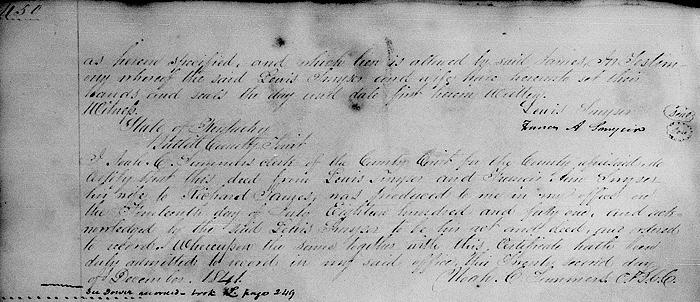 450
as herein specified, and which lien is allowed by said James, In Testim
ony whereof the said Lewis Snyser and wife have hereunto set their
hands and seals the day and date first herein Written
Witness Lewis Snyser Seal
Frances A Snyser Seal
State of Kentucky
Bullitt County
I Noah C. Summers clerk of the County Court for the County aforesaid do
certify that this deed from Lewis Snyser and Frances Ann Snyser
his wife to Richard James, was produced to me in my office on
the day of July Eighteen hundred and forty one, and ack
nowledged by the said Lewis Snyser to be his act and deed, and ordered
to record. Whereupon the same together with this Certificate hath been
duly admitted to record in my said office this Twenty second day
of December 1841. Noah C. Summers C.B.C.C.
See Dower record book page 249